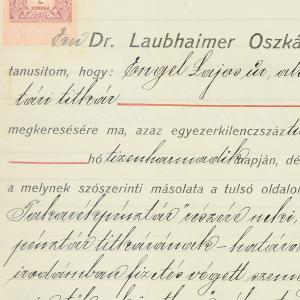 2
KORONA
Én Dr. Laubhaimer Oszká
tanusitom, hogy: Engel Lajos úr, al
tári titkár
megkeresésére ma, azaz egyezerkilenczszáz ti
hó tizenharmadik napján, dé
a melynek szószerinti másolata a tulsó oldalon
Takarékpénztár" részére neki,
pénztár titkárának - határo
irodámban fizetés végett szem